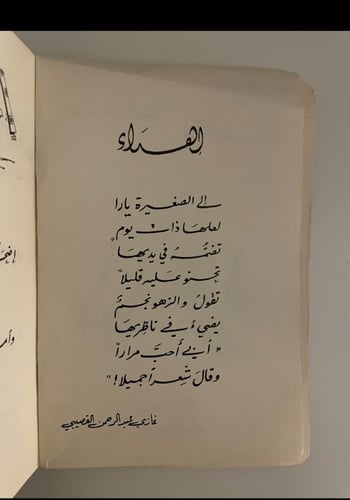 إهداء
إلى الصغيرة يارا
لعلها ذات يوم
تضمّهُ في يديها
تحنو عليه قليلاً
تقولُ والزهو نجمٌ
يضيءُ في ناظريها
"أبي أحبَّ مراراً
وقالَ شعراً جميلا!"
غازي عبد الرحمن القصيبي